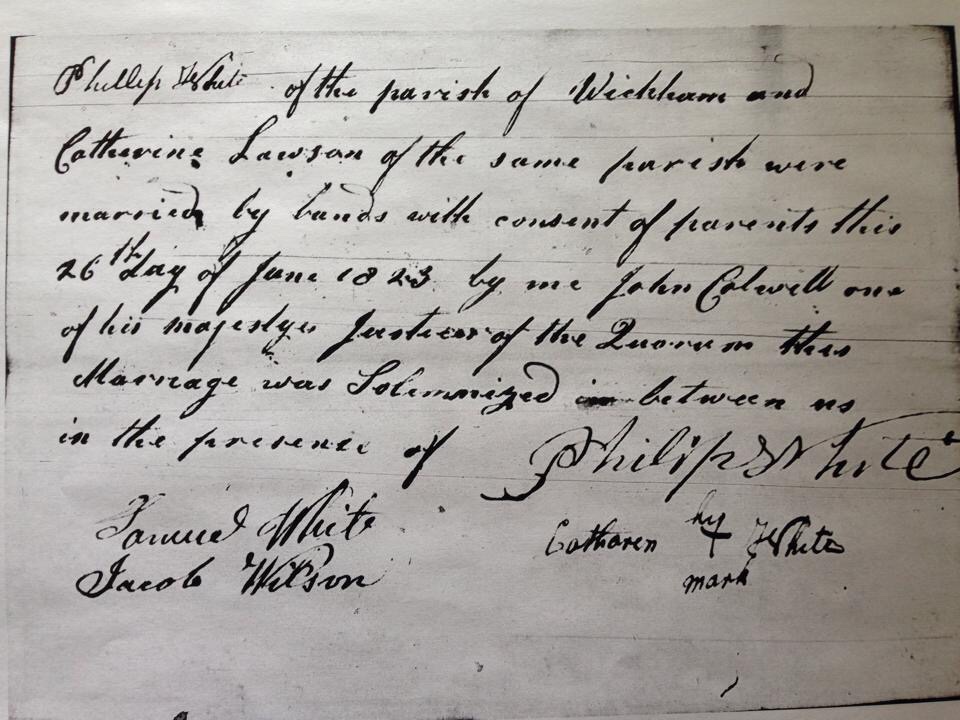 Phillip White of the parish of Wickham and
Catherine Lawson of the same parish were
married by bands with consent of parents this
26th day of June 1823 by me John Colwell one
of his majestys Justices of the Quorum this
Marriage was Solemnized between us
in the presence of Philip White
Samuel White hy
Catharen + White
Jacob Wilson mark